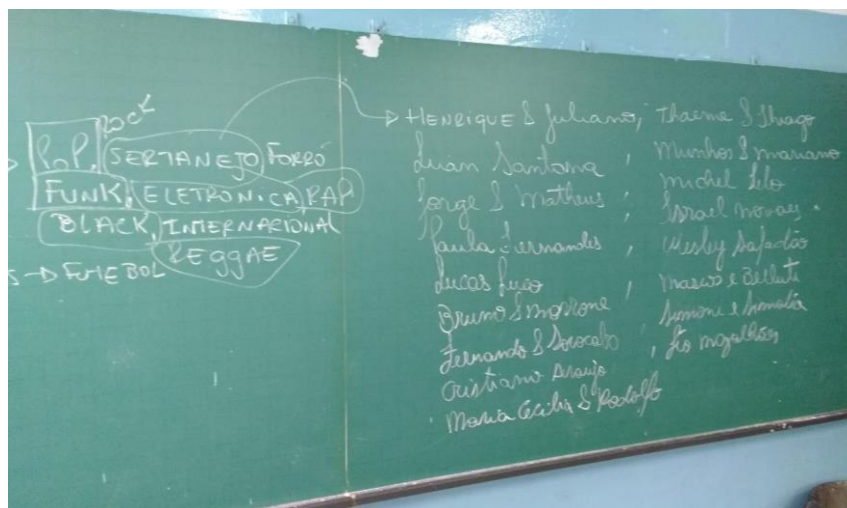 ROCK
POP, SERTANEJO FORRÓ
FUNK, ELETRONICA, RAP
BLACK, INTERNACIONAL
REGGAE
S → FUTEBOL
→ HENRIQUE & Juliano, Thaeme & Thiago
Luan Santana , Munhos & mariano
Jorge & Matheus , michel Telo
Paula Fernandes , Israel novaes
Lucas Luco , Wesley Safadão
Bruno & Marrone , Marcos e Bellute
Fernando & Sorocaba , Simone e Simaria
Cristiano Araujo
Maria Cecilia & Rodolfo